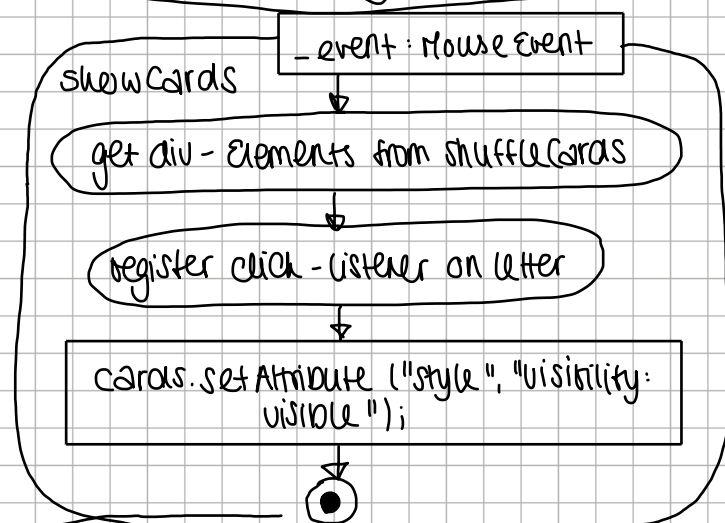 _event : MouseEvent
showCards
get div - Elements from shuffleCards
register click - listener on letter
cards.setAttribute ("style", "visibility:
visible");